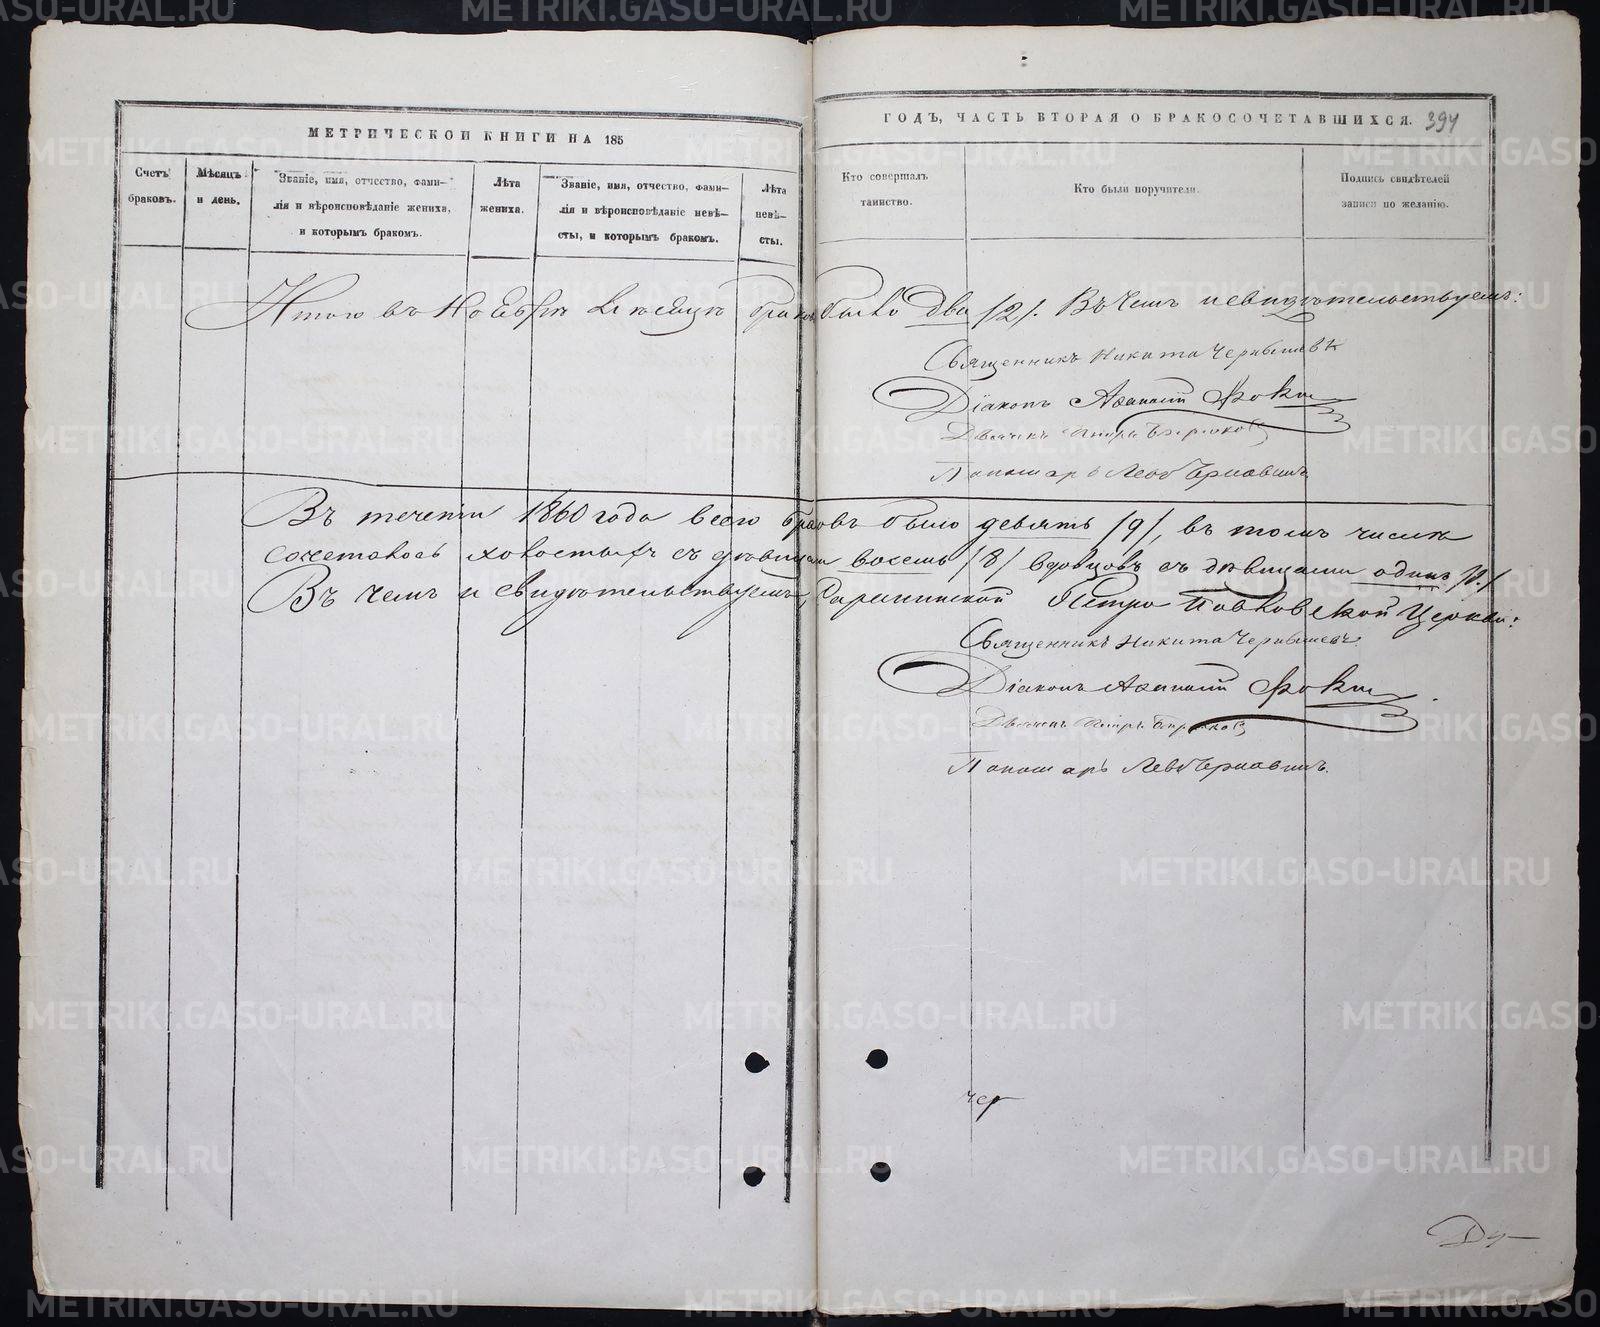 МЕТРИЧЕСКОЙ КНИГИ НА 185
ГОДЪ, ЧАСТЬ ВТОРАЯ О БРАКОСОЧЕТАВШИХСЯ. 394
Счетъ браковъ.
Мѣсяцъ и день.
Званіе, имя, отчество, фами-
лія и вѣроисповѣданіе жениха,
и которымъ бракомъ.
Лѣта
жениха.
Званіе, имя, отчество, фами-
лія и вѣроисповѣданіе невѣ-
сты, и которымъ бракомъ.
Лѣта
невѣ-
сты.
Кто совершалъ
таинство.
Кто были поручители.
Подпись свидѣтелей
записи по желанію.
Итого въ Ноябрѣ Мѣсяцѣ браковъ было два /2/. Въ чемъ и свидѣтельствуемъ:
Священникъ Никита Чернышевъ
Діаконъ Афанасій
Дьячикъ Петръ Бирюковъ
Пономарь Левъ Чернавинъ
Въ теченіи 1860 года всего браковъ было девять /9/, въ томъ числѣ
сочеталось холостыхъ съ дѣвицами восемь /8/ вдовцовъ съ дѣвицами одинъ /1/.
Въ чемъ и свидѣтельствуемъ, Петро Павловской Церкви:
Священникъ Никита Чернышевъ.
Діаконъ Афанасій
Дьячекъ Петръ Бирюковъ
Пономарь Левъ Чернавинъ.
чер
METRIKI.GASO-URAL.RU